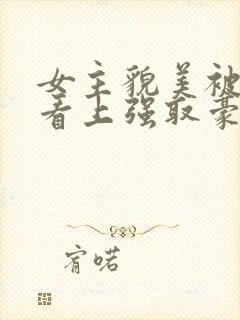 女主貌美被
看上强取豪
宥喏